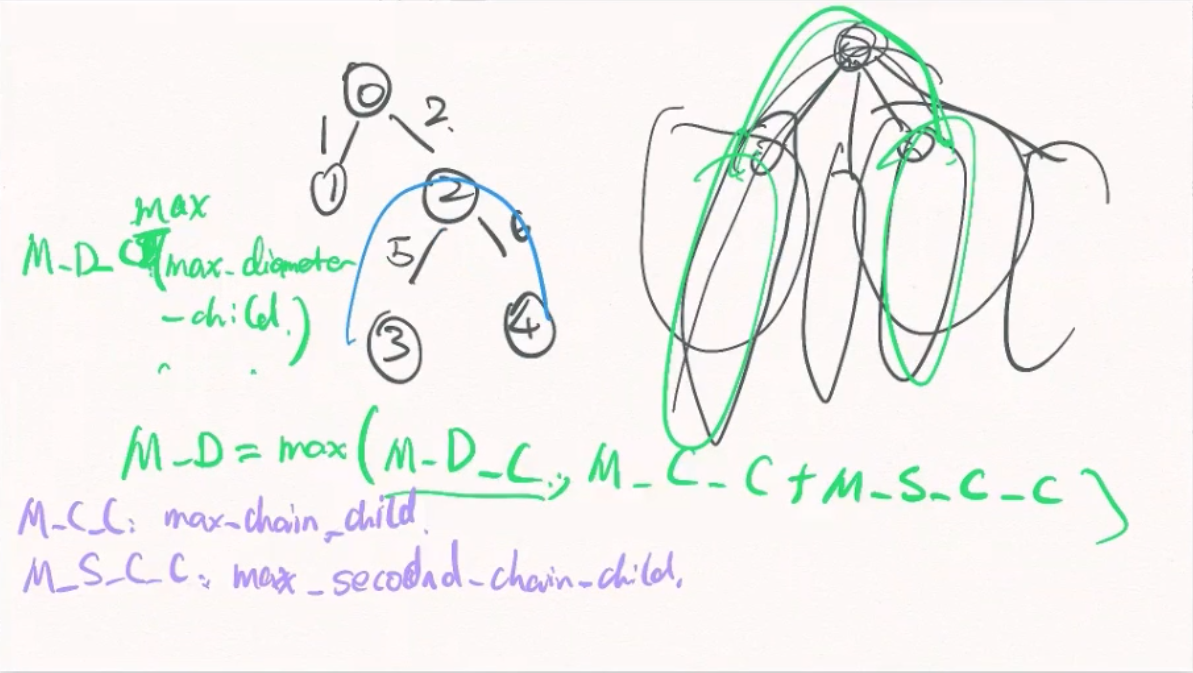 0
1 2.
1 2
max
M_D_C (max_diameter
_child.)
5 6
3 4
M_D = max(M_D_C., M_C_C + M_S_C_C)
M_C_C: max_chain_child.
M_S_C_C: max_secodnd_chain_child.